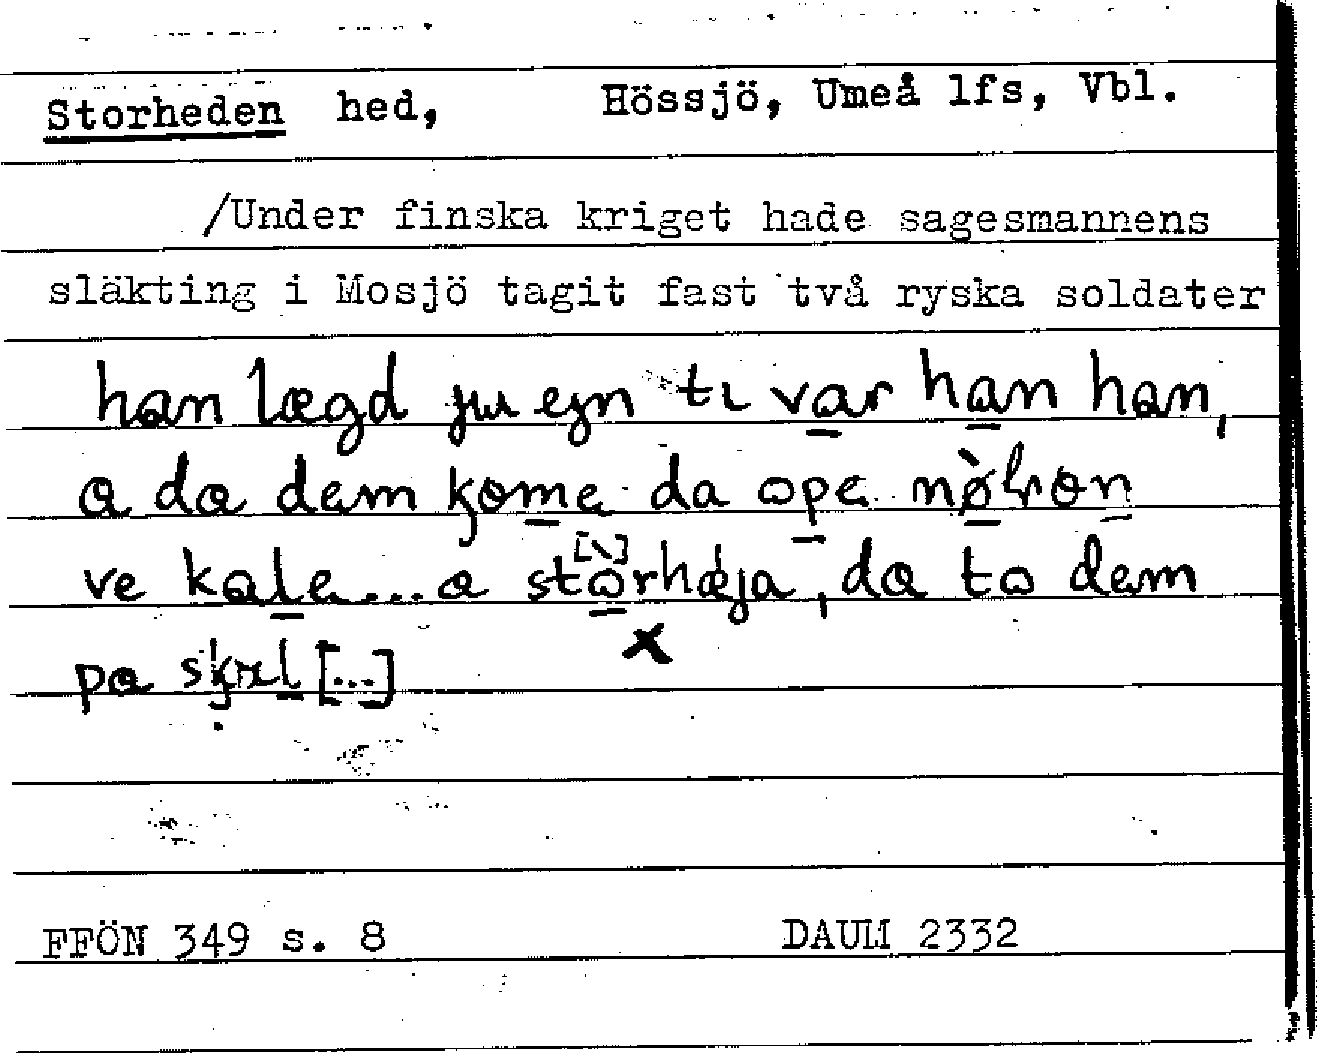 Storheden hed, Hössjö, Umeå lfs, Vbl.
/Under finska kriget hade sagesmannens
släkting i Mosjö tagit fast två ryska soldater
han lægd ju ejn tɩ var han han,
a da dem kome da ope
ve kale... a storhæja, da to dem
pa [...]
x
FFÖN 349 s. 8 DAUM 2332